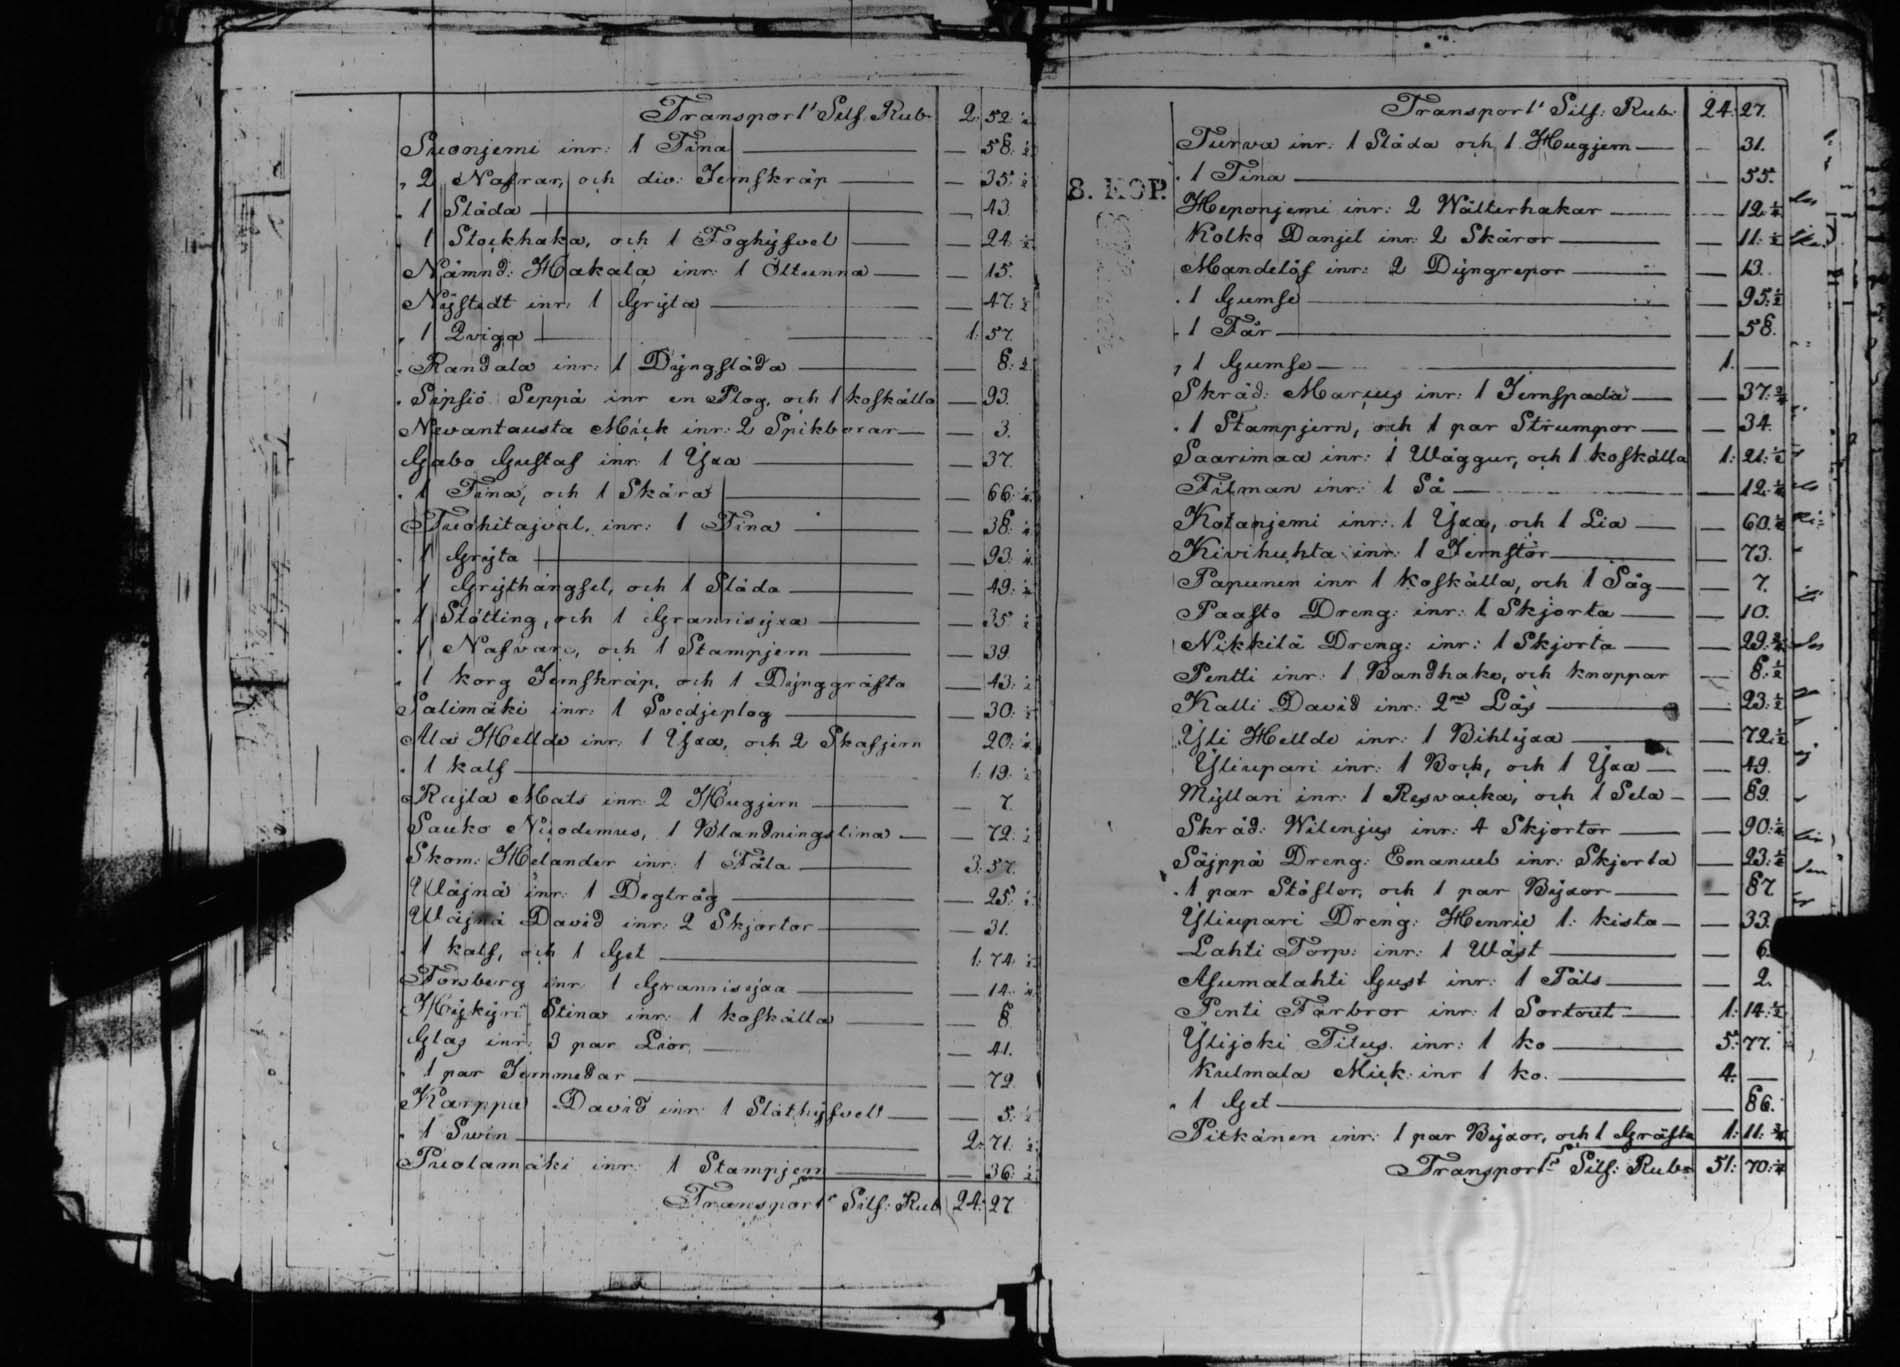 Transport Silf: Rub. 2. 52. ½
Suonjemi inr: 1 Tina — 58. ½
" 2 Nafrar, och div: Jernskräp — 35. ½
" 1 Släda — 43.
" 1 Stockhaka, och 1 Foghyfvel — 24. ½
Nämnd: Hakala inr: 1 Öltunna — 15.
Nystedt inr: 1 Gryta — 47. ½
" 1 Qviga 1. 57.
" Randala inr: 1 Dyngsläda — 8. ½
" Sipsiö Seppä inr en Plog, och 1 koskälla — 93.
Nevantausta Mick inr: 2 Spikborar — 3.
Gabo Gustaf inr: 1 Yxa — 37.
" 1 Tina, och 1 Skära — 66. ¼
Tuohitajval, inr: 1 Tina — 38. ¼
" 1 Gryta — 93. ¼
" 1 Grythängsel, och 1 Släda — 49. ½
" 1 Stötting, och 1 Grannisyxa — 35. ½
" 1 Nafvare, och 1 Stampjern — 39.
" 1 korg Jernskräp, och 1 Dynggräfta — 43. ½
Salimäki inr: 1 Svedjeplog — 30. ½
Ala Hellde inr: 1 Yxa, och 2 Skafjern 20. ¼
" 1 kalf 1. 19. ½
Rajla Mats inr: 2 Hugjern — 7.
Sauko Nicodemus, 1 Blandningstina — 72. ½
Skom: Helander inr: 1 Fåla 3. 57.
Wäjnä inr: 1 Degtråg — 25. ½
Wäjnä David inr: 2 Skjortor — 31.
" 1 kalf, och 1 Get 1. 74. ½
Forsberg inr: 1 Grannisyxa — 14. ¼
Hykyri Stina inr: 1 koskälla — 8.
Glas inr: 3 par Lior, — 41.
" 1 par Jernmedar — 72.
Karppa David inr: 1 Släthyfvel — 5. ½
" 1 Swin 2. 71. ½
Puolamäki inr: 1 Stampjern — 36. ½
Transport Silf: Rub 24. 27
Transport Silf: Rub: 24. 27.
Turva inr: 1 Släda och 1 Hugjern — 31.
8. KOP.
" 1 Tina — 55.
Heponjemi inr: 2 Wälterhakar — 12. ¼
Kolko Danjel inr: 2 Skäror — 11. ½
Mandelöf inr: 2 Dyngrepor — 13.
" 1 Gumse — 95. ½
" 1 Får — 58.
" 1 Gumse 1. —
Skräd: Marcus inr: 1 Jernspada — 37. ¾
" 1 Stampjern, och 1 par Strumpor — 34.
Saarimaa inr: 1 Wäggur, och 1 koskälla 1. 21. ½
Tilman inr: 1 Så — 12. ¼
Kotanjemi inr: 1 Yxa, och 1 Lia — 60. ½
Kivihuhta inr: 1 Jernstör — 73.
Papunen inr 1 koskälla, och 1 Såg — 7.
Paasto Dreng: inr: 1 Skjorta — 10.
Nikkilä Dreng: inr: 1 Skjorta — 29. ¾
Pentti inr: 1 Bandhake, och knappar — 8. ½
Kalli David inr: 2ne Lås — 23. ½
Yli Hellde inr: 1 Bihlyxa — 72. ½
Yliupari inr: 1 Bock, och 1 Yxa — 49.
Myllari inr: 1 Resväcka, och 1 Sela — 89.
Skräd: Wilenjus inr: 4 Skjortor — 90. ½
Säjppä Dreng: Emanuel inr: Skjorta — 23. ½
" 1 par Stöflor, och 1 par Byxor — 87
Yliupari Dreng: Henric 1: kista — 33.
Lahti Torp: inr: 1 Wäst — 6.
Asumalahti Gust inr: 1 Päls — 2.
Penti Farbror inr: 1 Sortout 1. 14. ½
Ylijoki Titus inr: 1 ko 5. 77.
Kulmala Mick: inr 1 ko. 4. —
" 1 Get — 86.
Pitkänen inr: 1 par Byxor, och 1 Gräfta 1. 11. ¾
Transport Silf: Rub: 51. 70. ¼